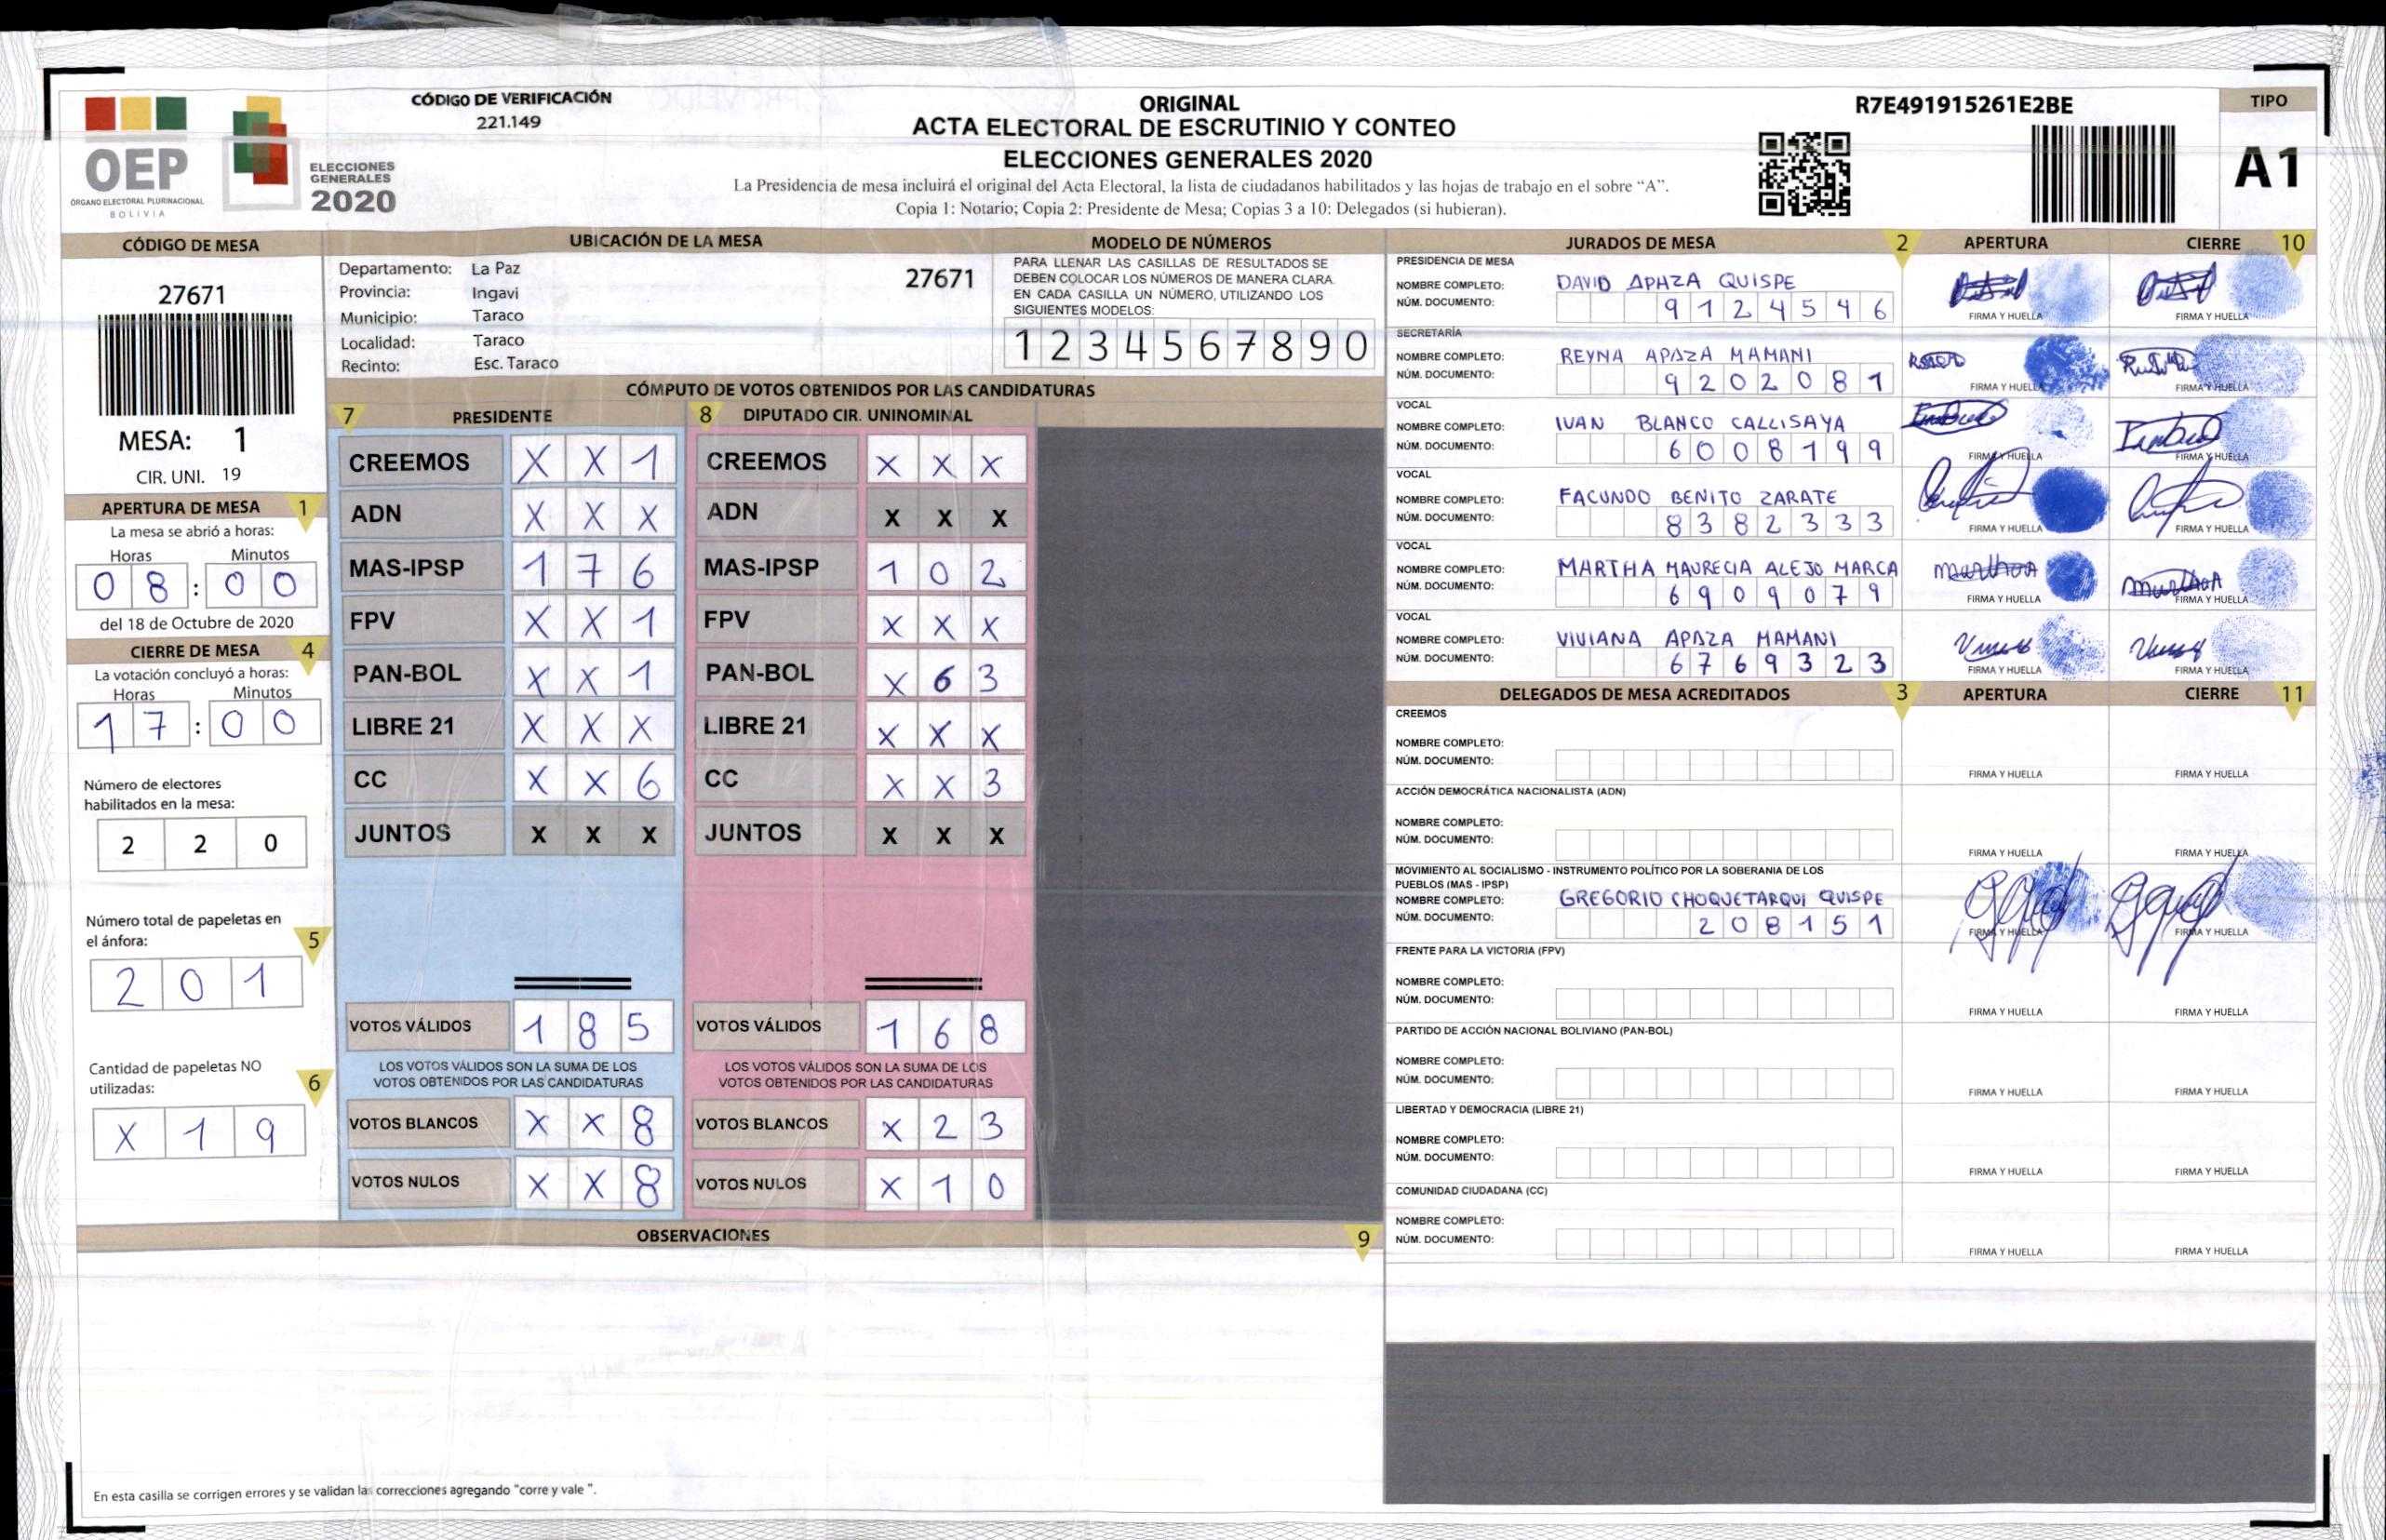 OEP
ÓRGANO ELECTORAL PLURINACIONAL
BOLIVIA
ELECCIONES
GENERALES
2020
CÓDIGO DE VERIFICACIÓN
221.149
ORIGINAL
ACTA ELECTORAL DE ESCRUTINIO Y CONTEO
ELECCIONES GENERALES 2020
La Presidencia de mesa incluirá el original del Acta Electoral, la lista de ciudadanos habilitados y las hojas de trabajo en el sobre “A”.
Copia 1: Notario; Copia 2: Presidente de Mesa; Copias 3 a 10: Delegados (si hubieran).
R7E491915261E2BE
TIPO
A1
CÓDIGO DE MESA
27671
MESA: 1
CIR. UNI. 19
APERTURA DE MESA 1
La mesa se abrió a horas:
Horas Minutos
0 8 : 0 0
del 18 de Octubre de 2020
CIERRE DE MESA 4
La votación concluyó a horas:
Horas Minutos
1 7 : 0 0
Número de electores
habilitados en la mesa:
2 2 0
Número total de papeletas en
el ánfora: 5
2 0 1
Cantidad de papeletas NO
utilizadas: 6
X 1 9
UBICACIÓN DE LA MESA
Departamento: La Paz 27671
Provincia: Ingavi
Municipio: Taraco
Localidad: Taraco
Recinto: Esc. Taraco
MODELO DE NÚMEROS
PARA LLENAR LAS CASILLAS DE RESULTADOS SE
DEBEN COLOCAR LOS NÚMEROS DE MANERA CLARA
EN CADA CASILLA UN NÚMERO, UTILIZANDO LOS
SIGUIENTES MODELOS:
1 2 3 4 5 6 7 8 9 0
CÓMPUTO DE VOTOS OBTENIDOS POR LAS CANDIDATURAS
7 PRESIDENTE 8 DIPUTADO CIR. UNINOMINAL
CREEMOS X X 1 CREEMOS X X X
ADN X X X ADN X X X
MAS-IPSP 1 7 6 MAS-IPSP 1 0 2
FPV X X 1 FPV X X X
PAN-BOL X X 1 PAN-BOL X 6 3
LIBRE 21 X X X LIBRE 21 X X X
CC X X 6 CC X X 3
JUNTOS X X X JUNTOS X X X
VOTOS VÁLIDOS 1 8 5 VOTOS VÁLIDOS 1 6 8
LOS VOTOS VÁLIDOS SON LA SUMA DE LOS LOS VOTOS VÁLIDOS SON LA SUMA DE LOS
VOTOS OBTENIDOS POR LAS CANDIDATURAS VOTOS OBTENIDOS POR LAS CANDIDATURAS
VOTOS BLANCOS X X 8 VOTOS BLANCOS X 2 3
VOTOS NULOS X X 8 VOTOS NULOS X 1 0
OBSERVACIONES 9
En esta casilla se corrigen errores y se validan las correcciones agregando "corre y vale ".
JURADOS DE MESA 2 APERTURA CIERRE 10
PRESIDENCIA DE MESA
NOMBRE COMPLETO: DAVID APAZA QUISPE
NÚM. DOCUMENTO: 9 1 2 4 5 4 6
FIRMA Y HUELLA FIRMA Y HUELLA
SECRETARÍA
NOMBRE COMPLETO: REYNA APAZA MAMANI
NÚM. DOCUMENTO: 9 2 0 2 0 8 1
FIRMA Y HUELLA FIRMA Y HUELLA
VOCAL
NOMBRE COMPLETO: IVAN BLANCO CALLISAYA
NÚM. DOCUMENTO: 6 0 0 8 1 9 9
FIRMA Y HUELLA FIRMA Y HUELLA
VOCAL
NOMBRE COMPLETO: FACUNDO BENITO ZARATE
NÚM. DOCUMENTO: 8 3 8 2 3 3 3
FIRMA Y HUELLA FIRMA Y HUELLA
VOCAL
NOMBRE COMPLETO: MARTHA MAURECIA ALEJO MARCA
NÚM. DOCUMENTO: 6 9 0 9 0 7 9
FIRMA Y HUELLA FIRMA Y HUELLA
VOCAL
NOMBRE COMPLETO: VIVIANA APAZA MAMANI
NÚM. DOCUMENTO: 6 7 6 9 3 2 3
FIRMA Y HUELLA FIRMA Y HUELLA
DELEGADOS DE MESA ACREDITADOS 3 APERTURA CIERRE 11
CREEMOS
NOMBRE COMPLETO:
NÚM. DOCUMENTO:
FIRMA Y HUELLA FIRMA Y HUELLA
ACCIÓN DEMOCRÁTICA NACIONALISTA (ADN)
NOMBRE COMPLETO:
NÚM. DOCUMENTO:
FIRMA Y HUELLA FIRMA Y HUELLA
MOVIMIENTO AL SOCIALISMO - INSTRUMENTO POLÍTICO POR LA SOBERANIA DE LOS
PUEBLOS (MAS - IPSP)
NOMBRE COMPLETO: GREGORIO CHOQUETARQUI QUISPE
NÚM. DOCUMENTO: 2 0 8 1 5 1
FIRMA Y HUELLA FIRMA Y HUELLA
FRENTE PARA LA VICTORIA (FPV)
NOMBRE COMPLETO:
NÚM. DOCUMENTO:
FIRMA Y HUELLA FIRMA Y HUELLA
PARTIDO DE ACCIÓN NACIONAL BOLIVIANO (PAN-BOL)
NOMBRE COMPLETO:
NÚM. DOCUMENTO:
FIRMA Y HUELLA FIRMA Y HUELLA
LIBERTAD Y DEMOCRACIA (LIBRE 21)
NOMBRE COMPLETO:
NÚM. DOCUMENTO:
FIRMA Y HUELLA FIRMA Y HUELLA
COMUNIDAD CIUDADANA (CC)
NOMBRE COMPLETO:
NÚM. DOCUMENTO:
FIRMA Y HUELLA FIRMA Y HUELLA